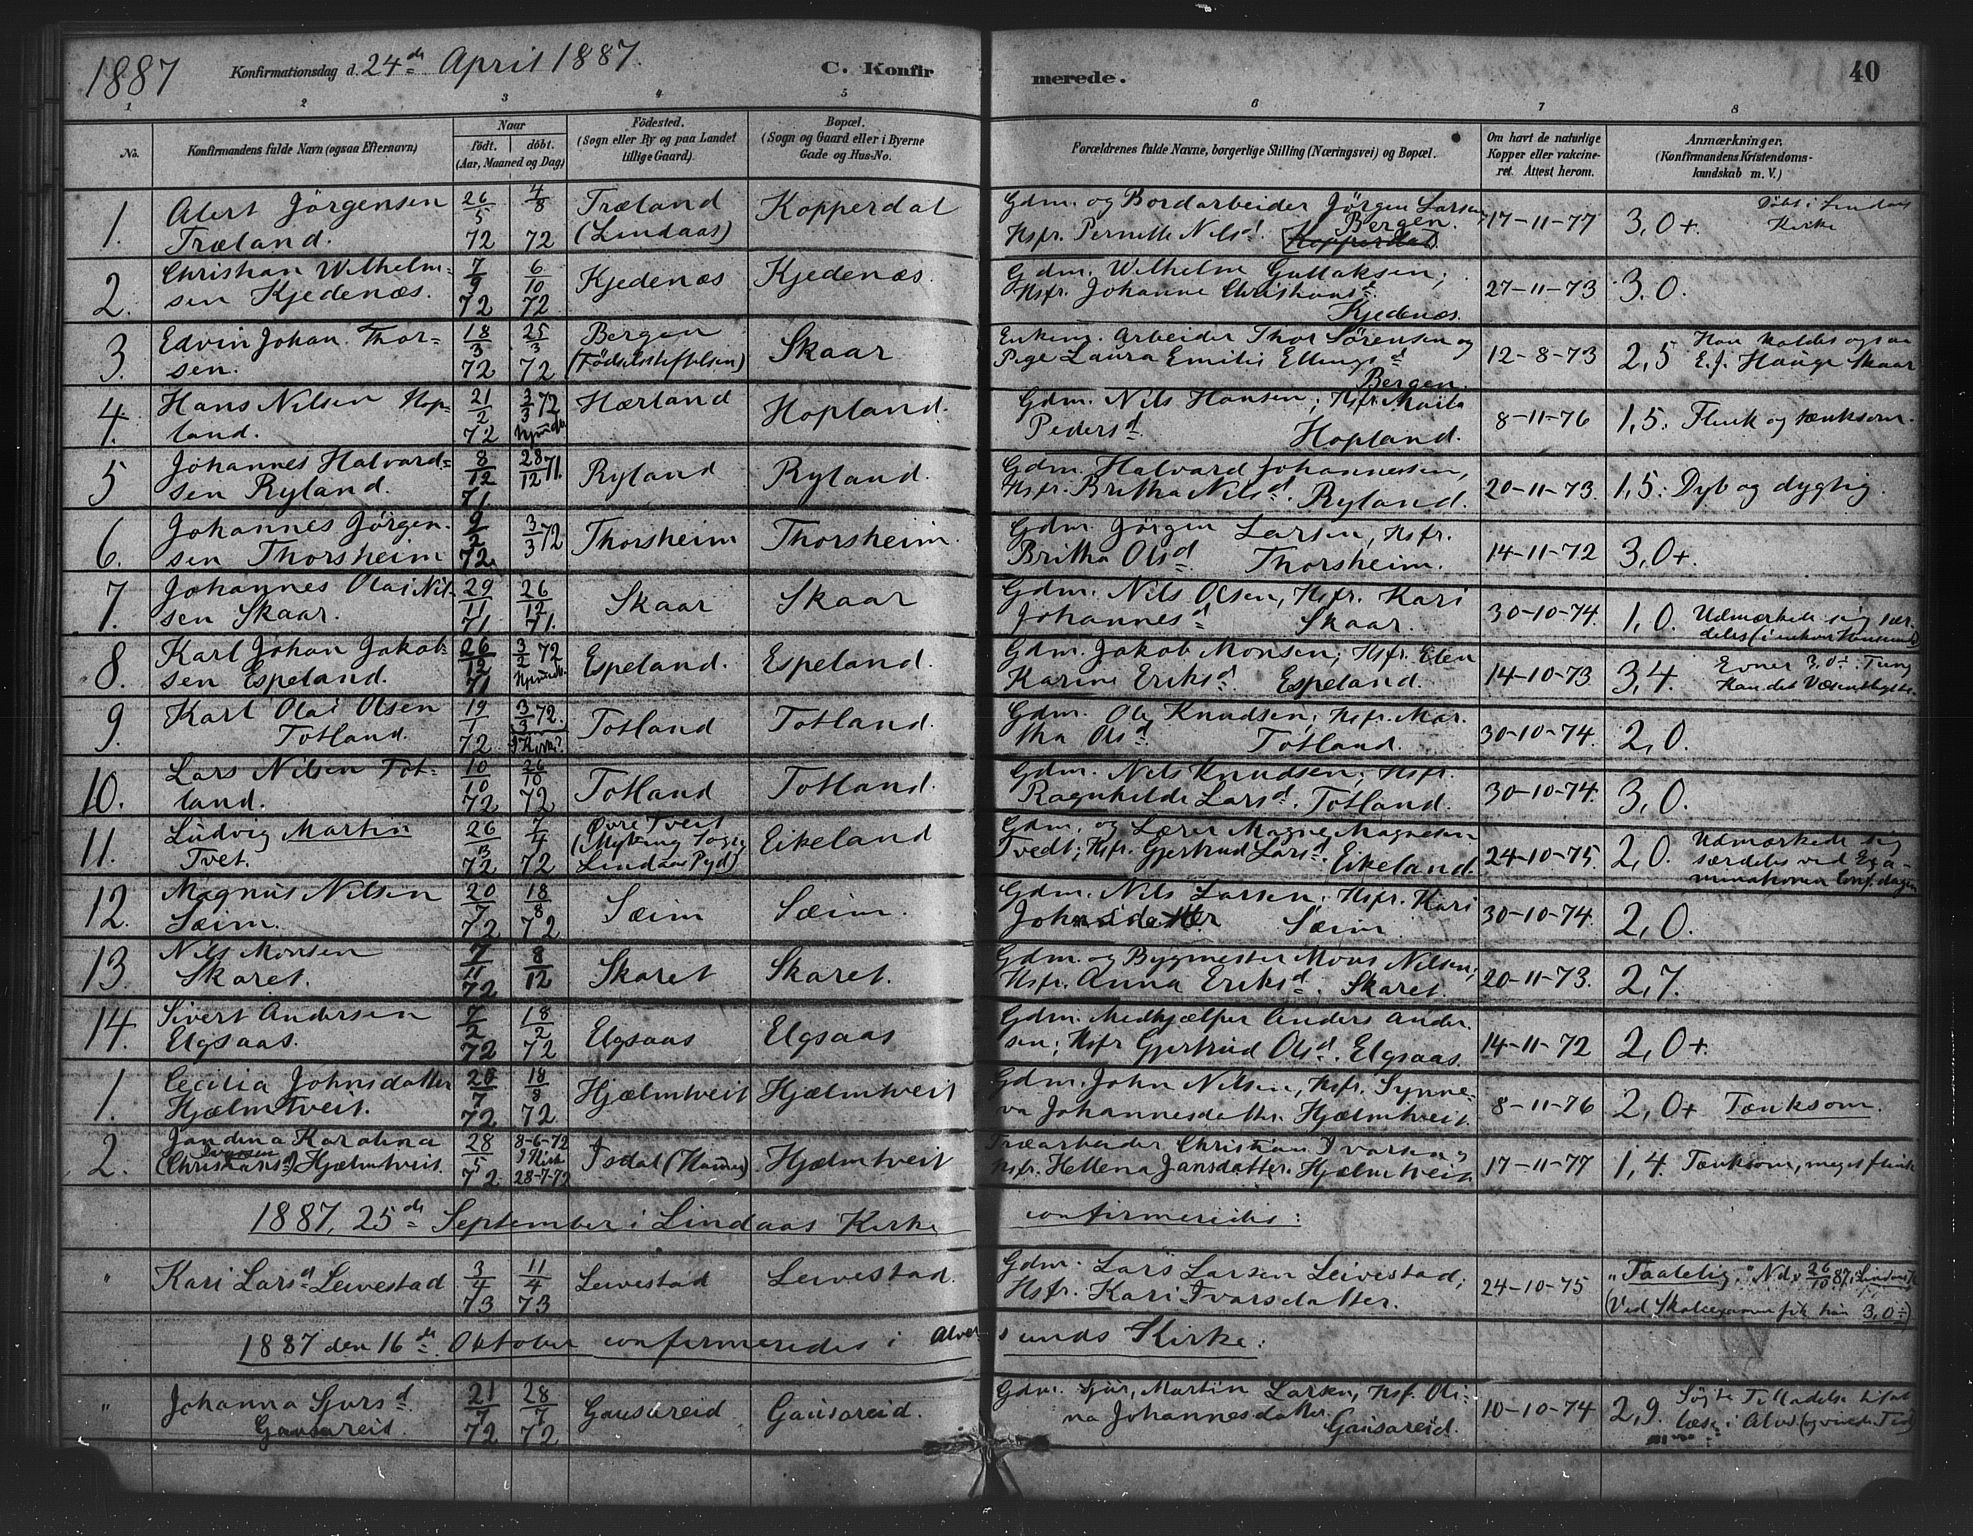 1887 Konfirmationsdag d. 24de April 1887. C. Konfirmerede. 40
1 2 3 4 5 6 7 8
No.
Konfirmandens fulde Navn (ogsaa Efternavn)
Naar
født. døbt.
(Aar, Maaned og Dag)
Fødested.
(Sogn eller By og paa Landet
tillige Gaard)
Bopæl.
(Sogn og Gaard eller i Byerne
Gade og Hus-No.
Forældrenes fulde Navne, borgerlige Stilling (Næringsvei) og Bopæl.
Om havt de naturlige
Kopper eller vakcine-
ret. Attest herom.
Anmærkninger.
(Konfirmandens Kristendoms-
kundskab m. V.)
1. Alert Jörgensen Træland. 26/5 72 4/8 72 Træland (Lindaas) Kopperdal Gdm. og Bordarbeider Jörgen Larsen Hsfr. Pernille Nilsd. Bergen. 17-11-77 3,0+ Döbt i Lindaas Kirke
2. Christian Wilhelm-
sen Kjedenæs. 7/9 72 6/10 72 Kjedenæs Kjedenæs. Gdm. Wilhelm Gullaksen, Hsfr. Johanne Christiansd. Kjedenæs. 27-11-73 3,0.
3. Edvin Johan Thor-
sen. 18/3 72 25/3 72 Bergen (Födselsstiftelsen) Skaar Enkem. Arbeider Thor Sörensen og Pige Laura Emilie Ellingsd Bergen. 12-8-73 2,5 Han kaldes ogsaa E. J. Hauge Skaar
4. Hans Nilsen Hop-
land. 21/2 72 3/3 72 Hjemmed. Hærland Hopland. Gdm. Nils Hansen, Hsfr. Marta Pedersd. Hopland. 8-11-76 1,5. Flink og tænksom.
5 Johannes Halvard-
sen Ryland. 8/12 71 28/12 71. Ryland Ryland. Gdm. Halvard Johannessen, Hsfr. Britha Nilsd. Ryland. 20-11-73. 1,5. Dyb og dygtig.
6. Johannes Jörgen-
sen Thorsheim 9/2 72 3/3 72 Thorsheim Thorsheim. Gdm. Jörgen Larsen, Hsfr. Britha Olsd. Thorsheim. 14-11-72 3,0+.
7. Johannes Olai Nil-
sen Skaar. 29/11 71 26/12 71. Skaar Skaar Gdm. Nils Olsen, Hsfr. Kari Johannesd. Skaar. 30-10-74. 1,0. Udmærkede sig sær-
deles
8. Karl Johan Jakob-
sen Espeland. 26/12 71 3/2 72 Espeland. Espeland. Gdm. Jakob Monsen, Hsfr. Elen Karine Eriksd. Espeland. 14-10-73 3,4. Evner 3,0. Tung
Kan det Væsentligste.
9. Karl Olai Olsen
Totland. 19/1 72 3/3 72. Totland Totland. Gdm. Ole Knudsen, Hsfr. Mar-
tha Olsd. Totland. 30-10-74. 2,0.
10. Lars Nilsen Tot-
land. 10/10 72 26/10 72 Totland Totland. Gdm. Nils Knudsen, Hsfr. Ragnhilde Larsd. Totland. 30-10-74. 3,0.
11. Ludvig Martin
Tvet. 26/3 72 7/4 72 Øvre Tveit (Myking Sogn, Lindaas Pgd) Eikeland Gdm. og Lærer Magne Magnesen Tvedt, Hsfr. Gjertrud Larsd. Eikeland. 24-10-75 2,0. Udmærkede sig
særdeles ved Exa-
minationen Conf. dagen
12. Magnus Nilsen
Sæim. 20/7 72 18/8 72 Sæim Sæim. Gdm. Nils Larsen, Hsfr. Kari Johnsdatter Sæim. 30-10-74. 2,0.
13 Nils Monsen
Skaret. 7/11 72 8/12 Skaret Skaret. Gdm. og Bygmester Mons Nilsen, Hsfr. Anna Eriksd. Skaret. 20-11-73. 2,7.
14. Sivert Andersen
Elgsaas. 7/2 72 18/2 72 Elgsaas Elgsaas Gdm. Medhjælper Anders Ander-
sen, Hsfr Gjertrud Olsd. Elgsaas. 14-11-72 2,0+.
1. Cecilia Johnsdatter
Hjælmtveit. 20/7 72 18/8 72 Hjælmtveit Hjælmtveit Gdm. John Nilsen, Hsfr. Synne-
va Johannesdatter, Hjælmtveit. 8-11-76 2,0+ Tænksom.
2. Jandina Karolina
Ivarsen
(Christiansd) Hjælmtveit. 28/5 72. 8-6-72 I Kirk 28-7-72 Isdal (Hammer) Hjælmtveit Træarbeider Christian Ivarsen, Hsfr. Hellena Jansdatter. Hjælmtveit 17-11-77 1,4. Tænksom, meget flink
1887, 25de September i Lindaas Kirke confirmeredes:
" Kari Larsd Leivestad 3/4 73 11/4 73 Leivestad Leivestad. Gdm. Lars Larsen Leivestad, Hsfr. Kari Ivarsdatter. 24-10-75 "Taalelig." Nds. 26/10 87. Lindaas
(Ved Skoleexamen fik hun 3,0÷)
1887 den 16de Oktober confirmeredes i Alversunds Kirke:
" Johanna Sjursd
Gausereid 21/7 72 28/7 72 Gausereid Gausereid. Gdm. Sjur Martin Larsen, Hsfr. Oli-
na Johannesdatter Gausereid. 10-10-74 2,9. Søgte Tilladelse til at
læse i Alvers.